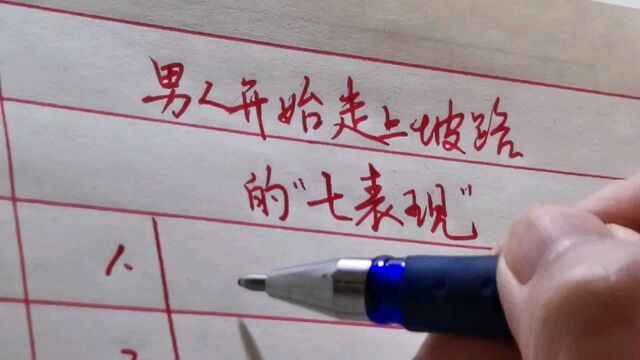 男人开始走上坡路
的“七表现”
1.